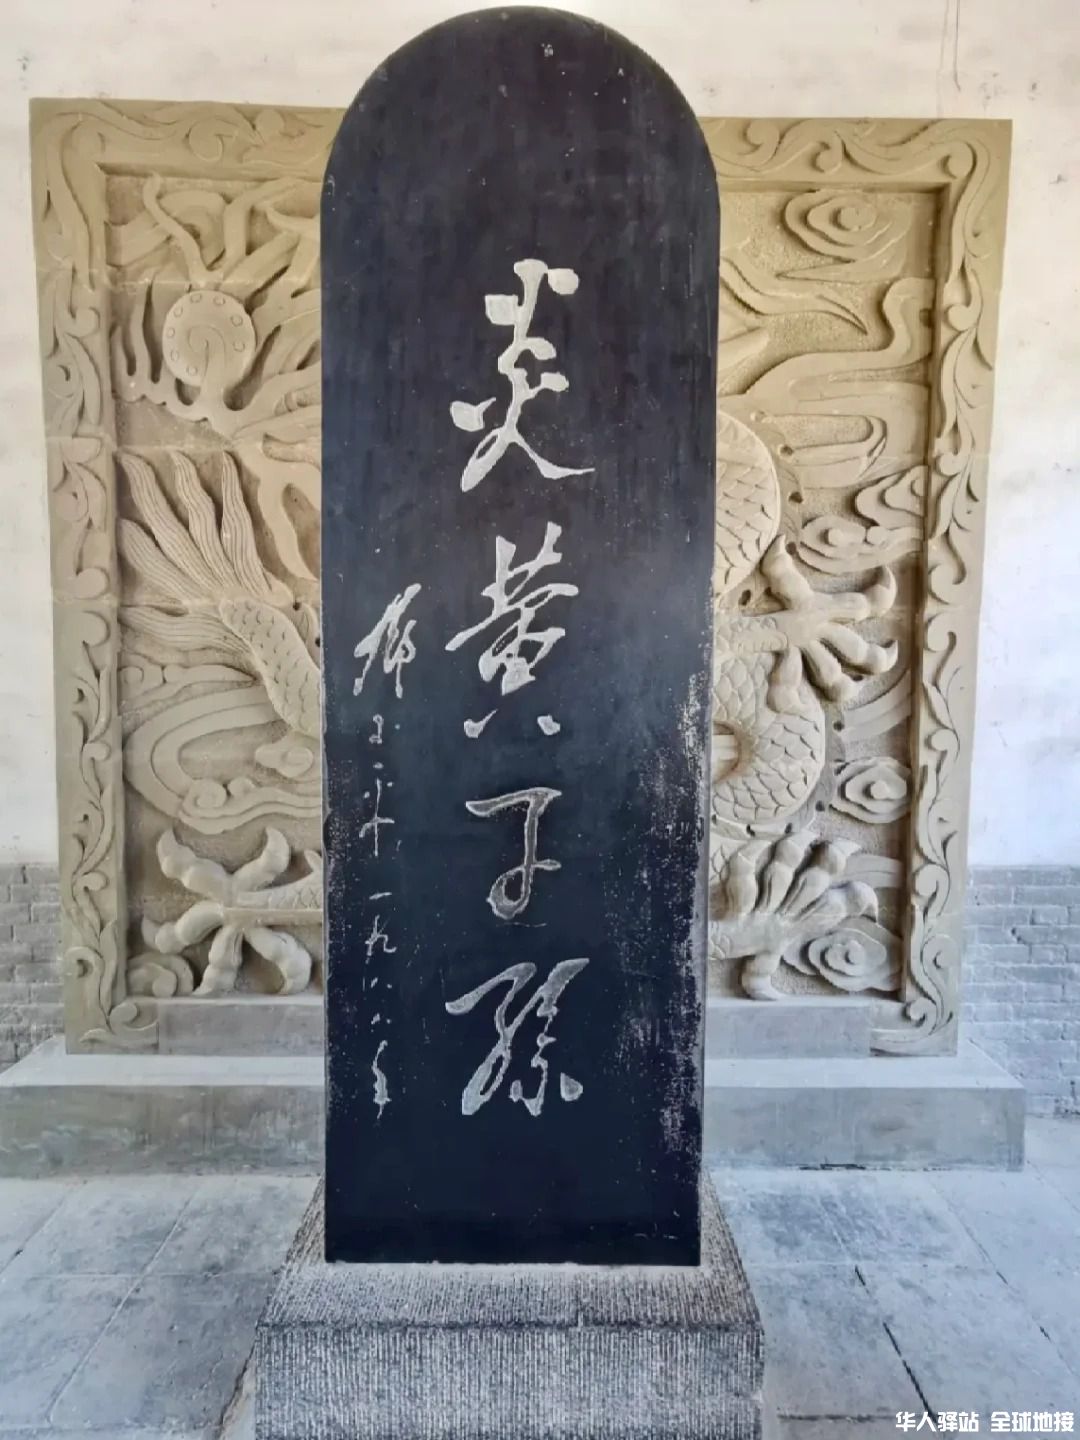 炎黄子孫
鄧小平 一九八八年
华人驿站 全球地接